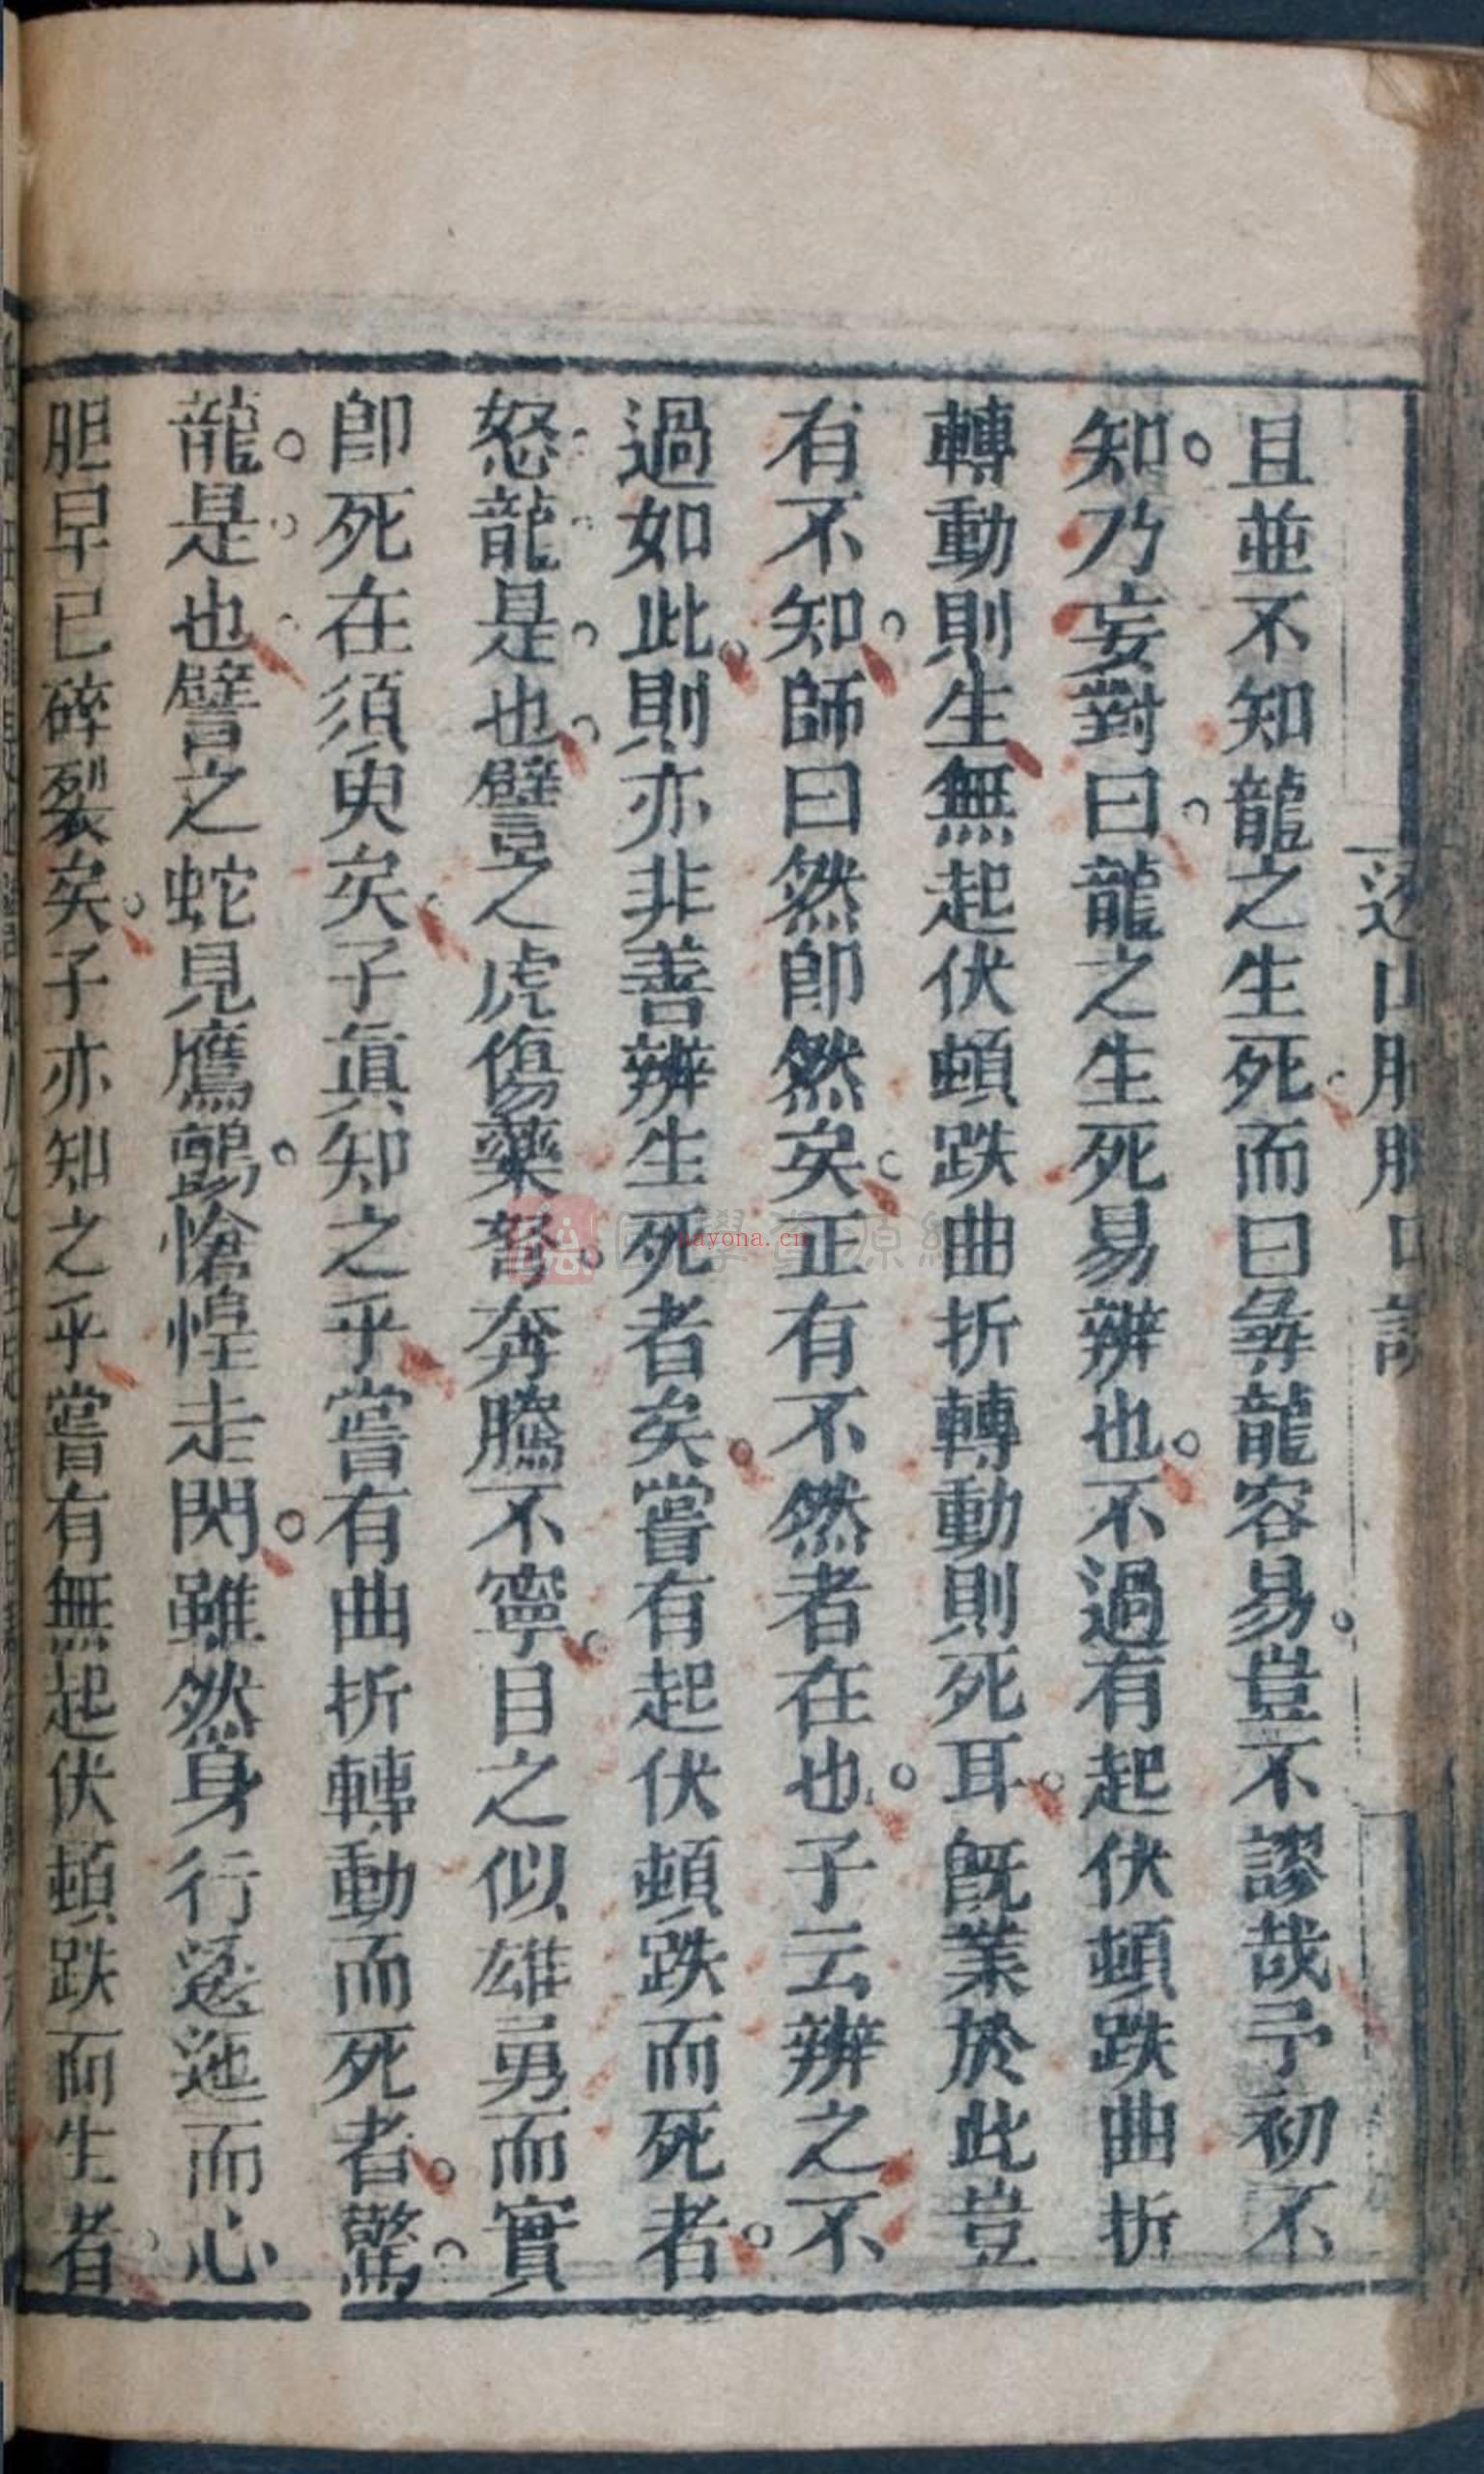 且並不知龍之生死而曰尋龍容易豈不謬哉予初不
知乃妄對曰龍之生死易辨也不過有起伏頓跌曲折
轉動則生無起伏頓跌曲折轉動則死耳旣業於此豈
有不知師曰然卽然矣正有不然者在也子云辨之不
過如此則亦非善辨生死者矣嘗有起伏頓跌而死者
怒龍是也譬之虎傷藥弩奔騰不寧目之似雄勇而實
卽死在須臾矣子眞知之乎嘗有曲折轉動而死者驚
龍是也譬之蛇見鷹鸇愴惶走閃雖然身行逶迤而心
胆早已碎裂矣子亦知之乎嘗有無起伏頓跌而生者
nayona.cn